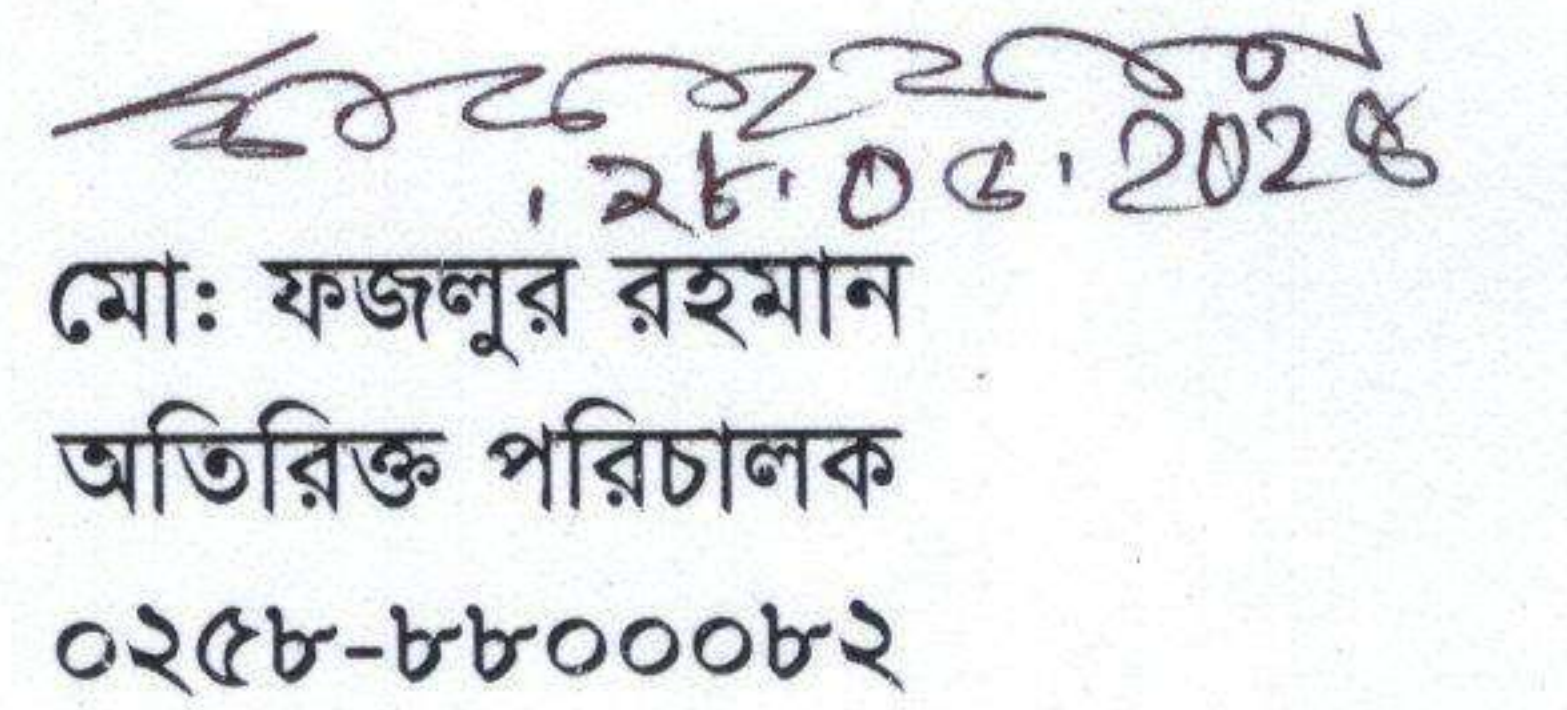 ২৮.০৫.202৪
মো: ফজলুর রহমান
অতিরিক্ত পরিচালক
০২৫৮-৮৮০০০৮২